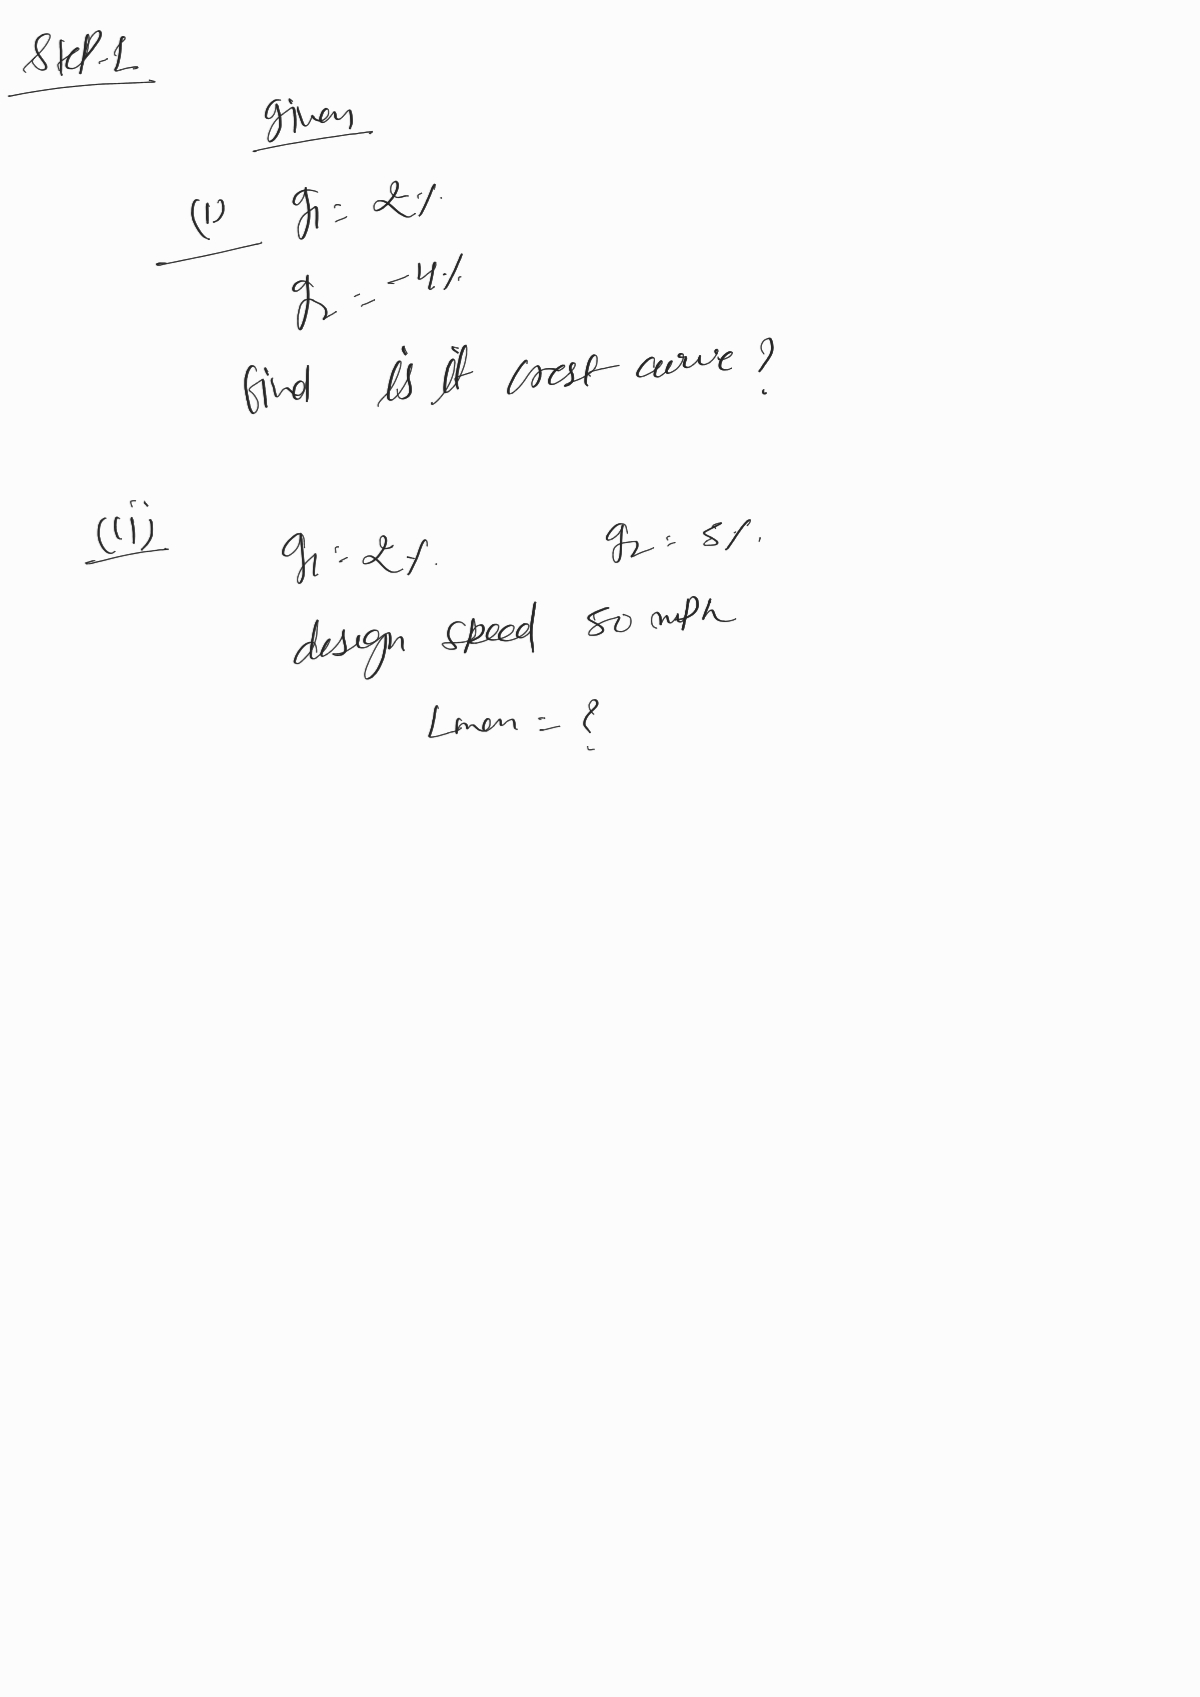 Step-1
given
(1) g1 = 2%
g2 = -4%
find is it crest curve?
(ii) g1 = 2% g2 = 5%.
design speed 50 mph
Lmen = ?